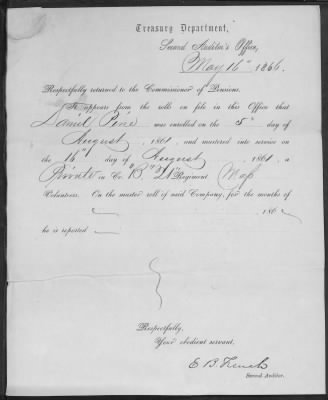 Treasury Department,
Second Auditor's Office,
May 16" 1866.
Respectfully returned to the Commissioner of Pensions.
It appears from the rolls on file in this Office that
Daniel was enrolled on the 5" day of
August, 1861, and mustered into service on
the 16" day of August, 1861, a
Private in Co. "B" 21" Regiment Mass
Volunteers. On the muster roll of said Company, for the months of
186
he is reported
Respectfully,
Your obedient servant,
E B French
Second Auditor.